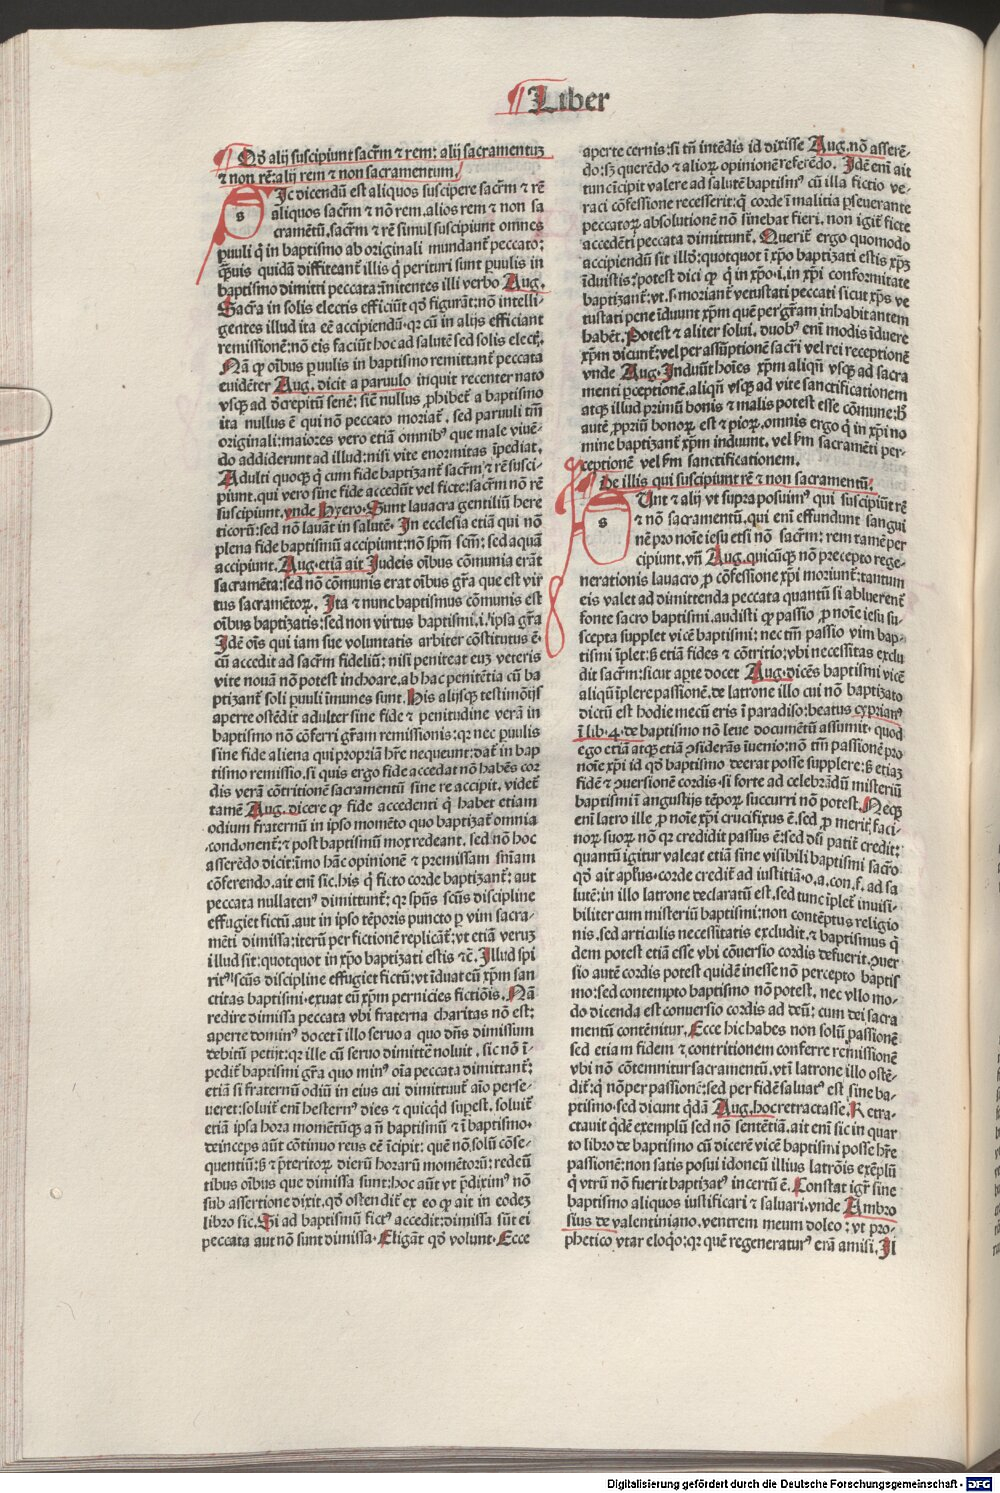 Liber
Qď alij suscipiunt sacr̄m ⁊ rem: alij sacramentuꝫ
⁊ non rē: alij rem ⁊ non sacramentum.
sIc dicendū est aliquos suscipere sacr̄m ⁊ rē
aliquos sacr̄m ⁊ nō rem. alios rem ⁊ non sa
cramētū. sacr̄m ⁊ rē simul suscipiunt omnes
ꝑuuli q̇ in baptismo ab originali mundant̄ peccato:
q̄ꝫuis quidā diffiteant̄ illis q̇ perituri sunt ꝑuulis in
baptismo dimitti peccata: īnitentes illi verbo Aug.
Sacr̄a in solis electis efficiūt qď figurāt: nō intelli-
gentes illud ita eē accipiendū. qꝛ cū in alijs efficiant
remissionē: nō eis faciūt hoc ad salutē sed solis elect̄.
Nā ꝙ oībus ꝑuulis in baptismo remittant̄ peccata
euidēter Aug. dicit a paruulo inquit recenter nato
vsqꝫ ad dcrepitū senē: sic̄ nullus ꝓhibet̄ a baptismo
ita nullus ē qui nō peccato moriat̄. sed paruuli tm̄
originali: maiores vero etiā omnibꝰ que male viuē-
do addiderunt ad illud: nisi vite enormitas īpediat.
Adulti quoqꝫ q̇ cum fide baptizant̄ sacr̄m ⁊ rē susci-
piunt. qui vero sine fide accedūt vel ficte: sacr̄m nō rē
suscipiunt. vnde Hyero. Sunt lauacra gentiliū here
ticorū: sed nō lauāt in salutē. In ecclesia etiā qui nō
plena fide baptismū accipiunt: nō spm̄ scm̄: sed aquā
accipiunt. Aug. etiā ait Judeis oībus cōmunia erāt
sacramēta: sed nō cōmunis erat oībus gr̄a que est vir
tus sacramētoꝝ. Ita ⁊ nunc baptismus cōmunis est
oībus baptizatis: sed non virtus baptismi. i. ipsa gr̄a
Idē oīs qui iam sue voluntatis arbiter cōstitutus ē.
cū accedit ad sacr̄m fideliū: nisi peniteat euꝫ veteris
vite nouā nō potest inchoare. ab hac penitētia cū ba
ptizant̄ soli ꝑuuli īmunes sunt. His alijsqꝫ testimōijs
aperte ostēdit̄ adulter sine fide ⁊ penitudine verā in
baptismo nō cōferri gr̄am remissionis: qꝛ nec ꝑuulis
sine fide aliena qui propriā hr̄e nequeunt: dat̄ in bap
tismo remissio. si quis ergo fide accedat nō habēs cor
dis verā cōtritionē sacramentū sine re accipit. videt̄
tamē Aug. dicere ꝙ fide accedenti q̇ habet etiam
odium fraternū in ipso momēto quo baptizat̄ omnia
condonent̄: ⁊ post baptismū mox redeant. sed nō hoc
asserēdo dicit: īmo hāc opinionē ⁊ premissam sniam
cōferendo. ait enī sic. his q̇ ficto corde baptizant̄: aut
peccata nullatenꝰ dimittunt̄: qꝛ spūs scūs discipline
effugiet fictū. aut in ipso tēporis puncto ꝑ vim sacra-
mēti dimissa: iterū per fictionē replicāt̄: vt etiā veruꝫ
illud sit: quotquot in xp̄o baptizati estis ⁊c̄. Illud spi
ritꝰ scūs discipline effugiet fictū: vt īduat eū xp̄m san
ctitas baptismi. exuat eū xp̄m pernicies fictiōis. Nā
redire dimissa peccata vbi fraterna charitas nō est:
aperte dominꝰ docet ī illo seruo a quo dn̄s dimissum
debitū petijt: qꝛ ille cū seruo dimittē noluit. sic nō ī-
pedit̄ baptismi gr̄a quo minꝰ oīa peccata dimittant̄:
etiā si fraternū odiū in eius cui dimittunt̄ aīo perse-
ueret: soluit̄ enī hesternꝰ dies ⁊ quicqď suꝑest. soluit̄
etiā ipsa hora momētūqꝫ an̄ baptismū ⁊ ī baptismo.
deinceps aūt cōtinuo reus eē īcipit: quē nō solū cōse-
quentiū: ß ⁊ p̄teritoꝝ dierū horarū momētorū: redeū
tibus oībus que dimissa sunt: hoc aūt vt p̄diximꝰ nō
sub assertione dixit. qď ostendit̄ ex eo ꝙ ait in eodeꝫ
libro sic. Si ad baptismū fictꝰ accedit: dimissa sūt ei
peccata aut nō sunt dimissa. Eligāt qď volunt. Ecce
aperte cernis: si tn̄ intēdis id dixisse Aug. nō asserē-
do: sꝫ querēdo ⁊ alioꝝ opinionē referēdo. Idē enī ait
tunc īcipit valere ad salutē baptismꝰ cū illa fictio ve-
raci cōfessione recesserit: q̄ corde ī malitia ꝑseuerante
peccatoꝝ absolutionē nō sinebat fieri. non igit̄ ficte
accedēti peccata dimittunt̄. Querit̄ ergo quomodo
accipiendū sit illď: quotquot ī xp̄o baptizati estis xp̄ꝫ
īduistis: potest dici ꝙ q̇ in xp̄o. i. in xp̄i conformitate
baptizant̄: vt. s. moriant̄ vetustati peccati sicut xp̄s ve
tustati pene īduunt xp̄m quē per gr̄am inhabitantem
habēt. Potest ⁊ aliter solui. duobꝰ enī modis īduere
xp̄m dicunt̄: vel per assūptionē sacr̄i vel rei receptionē
vnde Aug. Induūt hoīes xp̄m aliqn̄ vsqꝫ ad sacra
menti ꝑceptionē. aliqn̄ vsqꝫ ad vite sanctificationem
atqꝫ illud primū bonis ⁊ malis potest esse cōmune: hͦ
autē ꝓpriū bonoꝝ est ⁊ pioꝝ. omnis ergo q̇ in xp̄i no
mine baptizant̄ xp̄m induunt. vel ẜm sacramēti per-
ceptionē vel ẜm sanctificationem.
De illis qui suscipiunt rē ⁊ non sacramentū.
sUnt ⁊ alij vt supra posuimꝰ qui suscipiūt rē
⁊ nō sacramentū. qui enī effundunt sangui
nē pro noīe iesu etsi nō sacr̄m: rem tamē per
cipiunt. vn̄ Aug. quicūqꝫ nō precepto rege-
nerationis lauacro ꝓ cōfessione xp̄i moriunt̄: tantum
eis valet ad dimittenda peccata quantū si abluerent̄
fonte sacro baptismi. audisti ꝙ passio ꝓ noīe iesu su-
scepta supplet vicē baptismi: nec tm̄ passio vim bap-
tismi īplet: ß etiā fides ⁊ cōtritio: vbi necessitas exclu
dit sacr̄m: sicut aꝑte docet Aug. dicēs baptismi vicē
aliqn̄ īplere passionē. de latrone illo cui nō baptizato
dictū est hodie mecū eris ī paradiso: beatus cyprianꝰ
ī lib. 4. de baptismo nō leue documētū assumit. quod
ego etiā atqꝫ etiā ꝯsiderās īuenio: nō tm̄ passionē pro
noīe xp̄i id qď baptismo deerat posse supplere: ß etiaꝫ
fidē ⁊ ꝯuersionē cordis. si forte ad celebrādū misteriū
baptismi ī angustijs tēpoꝝ succurri nō potest. Neqꝫ
enī latro ille ꝓ noīe xp̄i crucifixus ē. sed ꝓ merit̄ faci-
noꝝ suoꝝ nō qꝛ credidit passus ē: sed dū patit̄ credit̄:
quantū igitur valeat etiā sine visibili baptismi sacr̄o
qď ait ap̄lus. corde credit̄ ad iustitiā. o. a. con. f. ad sa
lutē: in illo latrone declaratū est. sed tunc īplet̄ inuisi-
biliter cum misteriū baptismi: non cōtēptus religio
nis. sed articulis necessitatis excludit. ⁊ baptismus q̇
dem potest etiā esse vbi cōuersio cordis defuerit. ꝯuer
sio autē cordis potest quidē inesse nō percepto baptis
mo: sed contempto baptismo nō potest. nec vllo mo-
do dicenda est conuersio cordis ad deū: cum dei sacra
mentū contēnitur. Ecce hic habes non solū passionē
sed etiam fidem ⁊ contritionem conferre remissionē
vbi nō cōtemnitur sacramentū. vti latrone illo ostē-
dit̄: q̇ nō per passionē: sed per fidē saluatꝰ est sine ba-
ptismo. sed dicunt q̇dā Aug. hoc retractasse. Retra-
ctauit qdē exemplū sed nō sentētiā. ait enī sic in quar
to libro de baptismo cū dicerē vicē baptismi posse hr̄e
passionē: non satis posui idoneū illius latrōis exēplū
q̇ vtrū nō fuerit baptizatꝰ incertū ē. Constat igr̄ sine
baptismo aliquos iustificari ⁊ saluari. vnde Ambro
sius de valentiniano. ventrem meum doleo: vt pro-
phetico vtar eloqo: qꝛ quē regeneraturꝰ erā amisi. Il
Digitalisierung gefördert durch die Deutsche Forschungsgemeinschaft - DFG